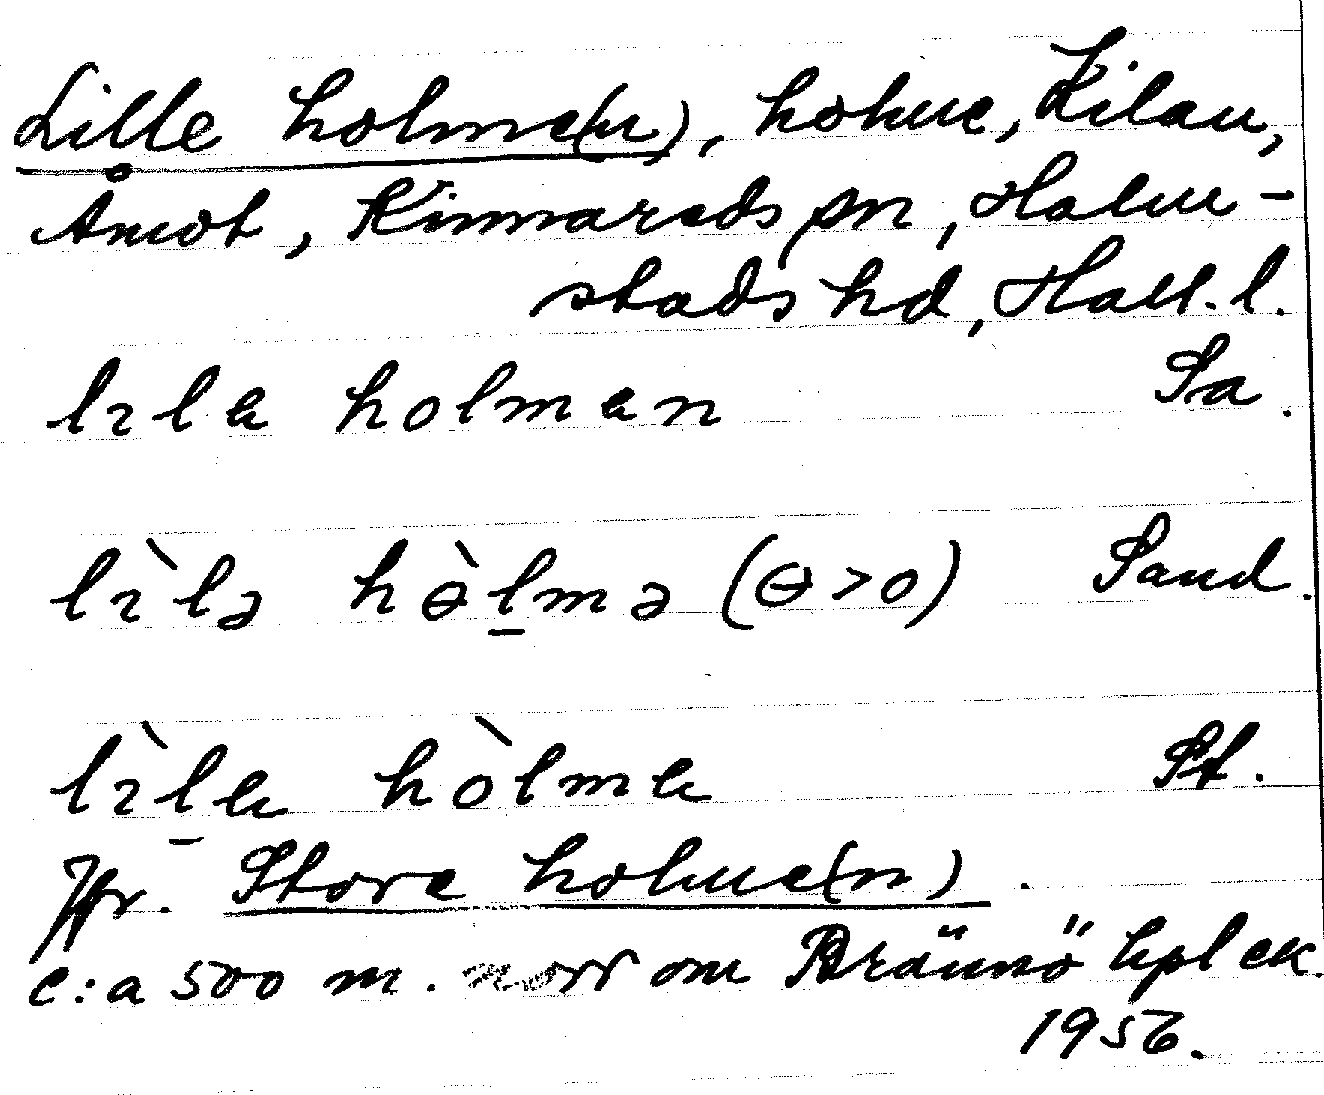 Lille holme(n), holme, Kilan,
Åmot, Kinnareds sn, Halm-
stads hd, Hall. l.
lɪla holman Sa.
lɪ̀lə hɵ̀lmə (ɵ>o) Sand.
lɪ̀la hòlma St.
Jfr. Store holme(n).
c:a 500 m. norr om Brännö hpl ek.
1956.